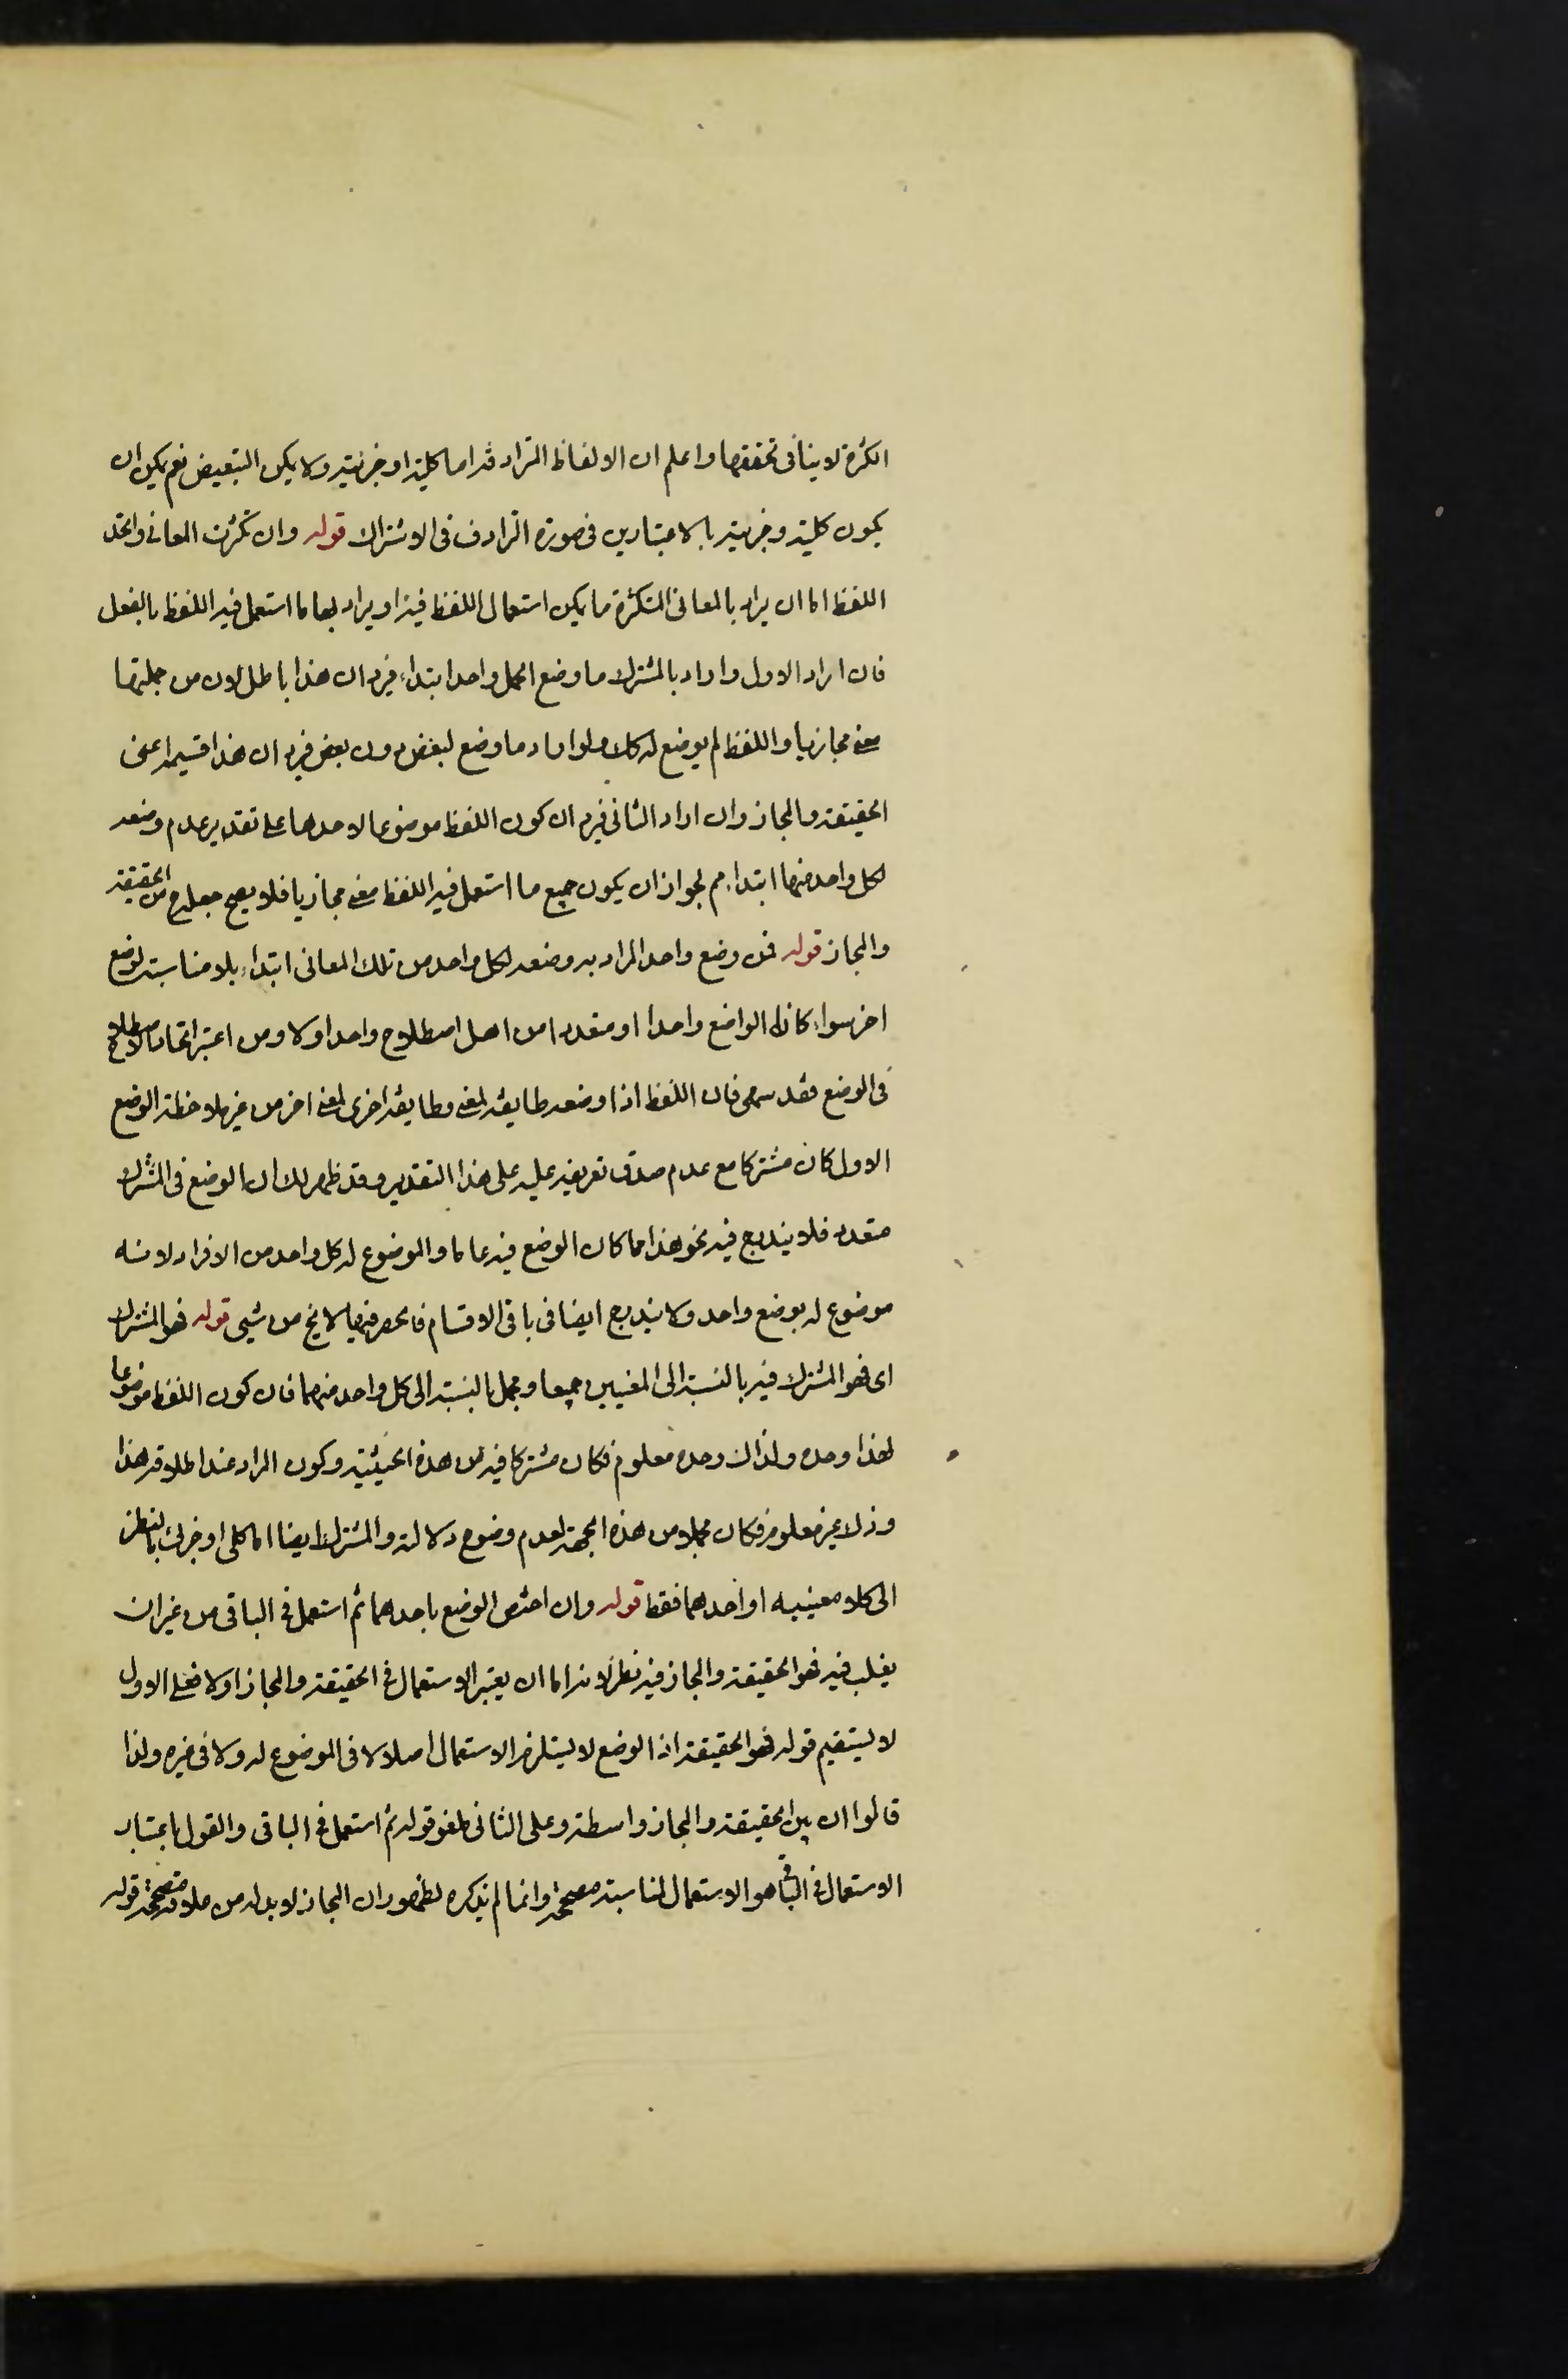 الكثرة لا ينافى تحققها واعلم ان الالفاظ المترادفة اما كلية او جزئية ولا يمكن التبعيض نعم يمكن ان
يكون كلية وجزئية بالاعتبارين فى صورة الترادف فى الاشتراك قوله وان تكثرت المعانى واتحد
اللفظ اما ان يراد بالمعانى المتكثرة ما يمكن استعمال اللفظ فيه او يراد بها ما استعمل فيه اللفظ بالفعل
فان اراد الاول واراد بالمشترك ما وضع لكل واحد ابتداء فيرد ان هذا باطل لان من جملتها
معنى مجازيا واللفظ لم يوضع له كلا ولو اراد ما وضع لبعض دون بعض فيرد ان هذا قسيمه اعنى
الحقيقة والمجاز وان اراد الثانى فيرد ان كون اللفظ موضوعا لاحدها على تقدير عدم وضعه
لكل واحد منها ابتداء مم لجواز ان يكون جميع ما استعمل فيه اللفظ معنى مجازيا فلا يصح جعله ح من الحقيقة
والمجاز قوله فمن وضع واحد المراد به وضعه لكل واحد من تلك المعانى ابتداء بلا مناسبة لوضع
اخر سواء كان الواضع واحدا او متعددا من اهل اصطلاح واحد اولا ومن اعتبر اتحاد الاصطلاح
فى الوضع فقد سهى فان اللفظ اذا وضعه طايفة لمعنى وطايفة اخرى لمعنى اخر من غير ملاحظة الوضع
الاول كان مشتركا مع عدم صدق تعريفه عليه على هذا التقدير وقد ظهر لك ان الوضع فى المشترك
متعدد فلا يندرج فيه نحو هذا مما كان الوضع فيه عاما والموضوع له كل واحد من الافراد لانه
موضوع له بوضع واحد ولا يندرج ايضا فى باقى الاقسام فالحصر فيها لا يخ من شيى قوله فهو المشترك
اى فهو المشترك فيه بالنسبة الى المعنيين جميعا ومجمل بالنسبة الى كل واحد منهما فان كون اللفظ موضوعا
لهذا وحده ولذاك وحده معلوم فكان مشتركا فيه من هذه الحيثية وكون المراد عند اطلاقه هذا
وذلك غير معلوم فكان مجملا من هذه الجهة لعدم وضوح دلالته والمشترك ايضا اما كلى او جزئى بالنظر
الى كلا معنييه او احدهما فقط قوله وان اختص الوضع باحدهما ثم استعمل فى الباقى من غير ان
يغلب فيه فهو الحقيقة والمجاز فيه نظر لانه اما ان يعتبر الاستعمال فى الحقيقة والمجاز اولا فعلى الاول
لا يستقيم قوله فهو الحقيقة اذ الوضع لا يستلزم الاستعمال اصلا لا فى الموضوع له ولا فى غيره ولذا
قالوا ان بين الحقيقة والمجاز واسطة وعلى الثانى يلغو قوله ثم استعمل فى الباقى والقول باعتبار
الاستعمال فى الباقى هو الاستعمال لمناسبة مصححة وانما لم يذكره لظهور ان المجاز لا بد له من علاقة مصححة قوله